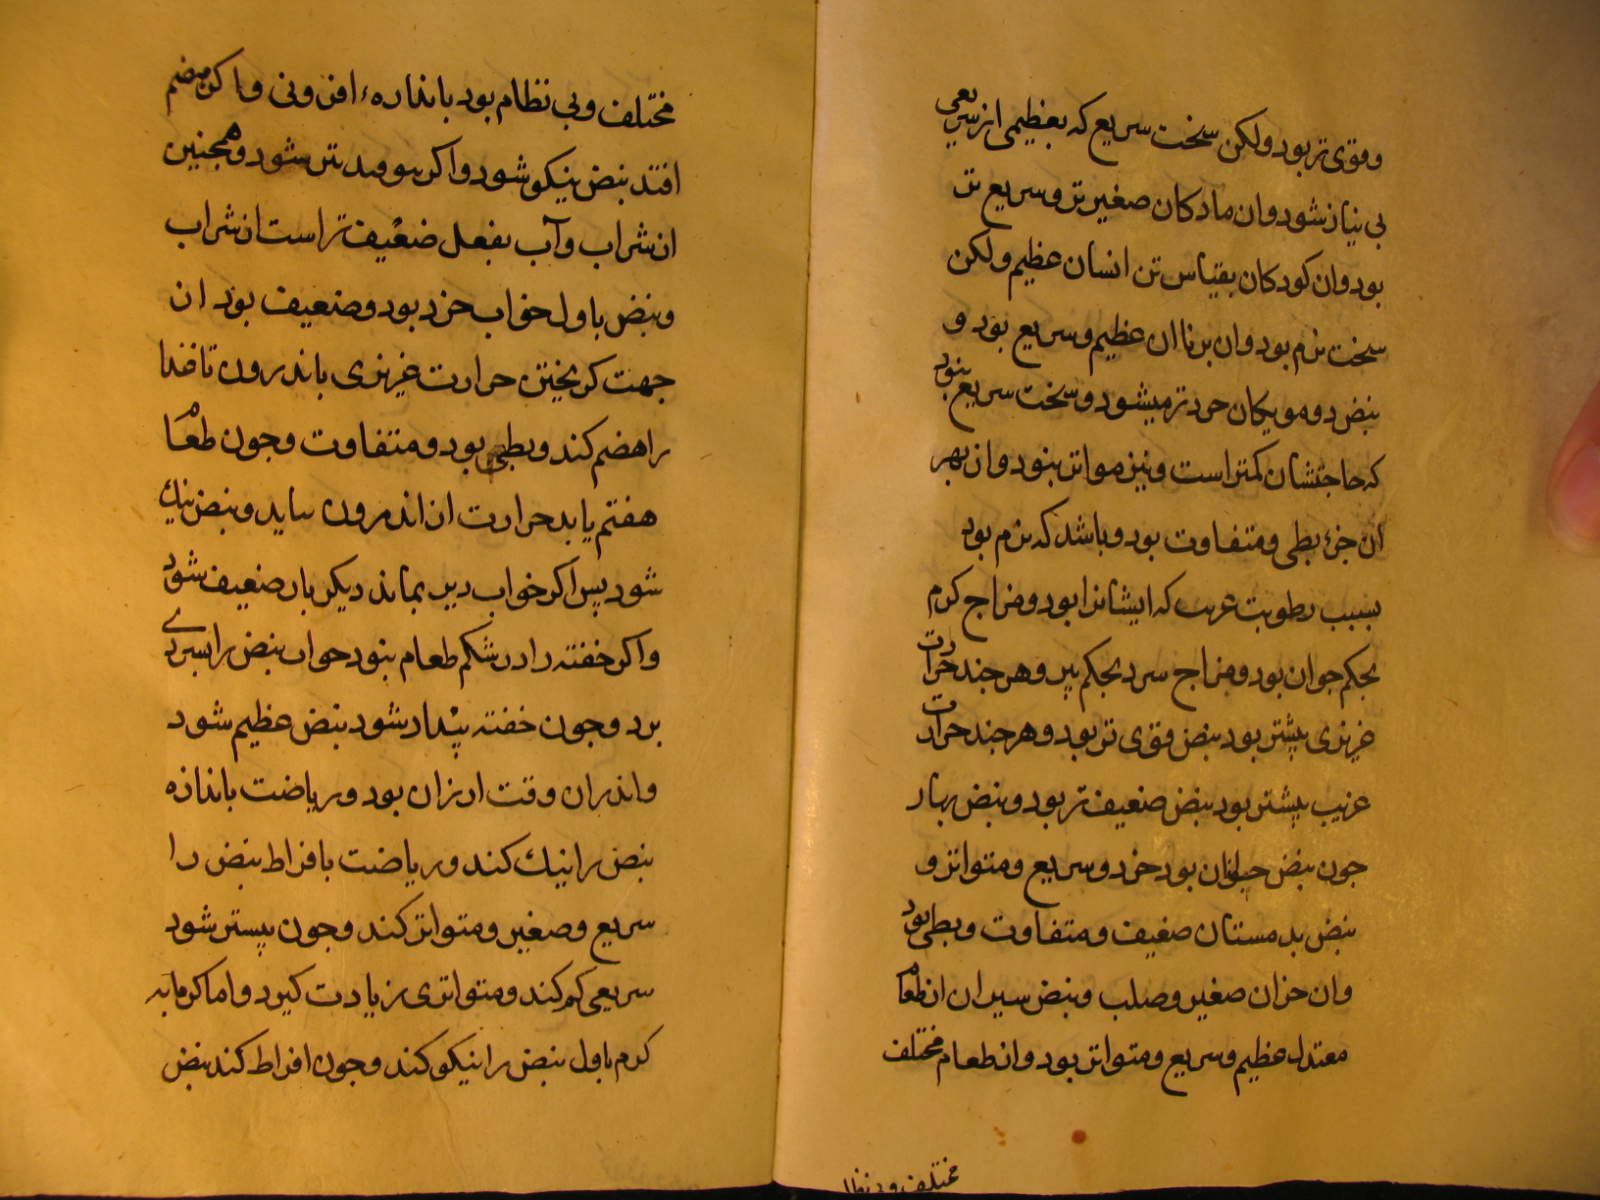 وقوی تر بود ولکن سخت سریع که بعظیمی از سریعی
بی نیاز شود وان مادکان صغیر تر وسریع تر
بود وان کودکان بقیاس تن انسان عظیم ولکن
سخت نرم بود وان برناان عظیم وسریع بود و
نبض دومویکان خرد تر میشود وسخت سریع نبود
که حاجتشان کمتر است ونیز متواتر نبود وان بهر
ان جزء بطی ومتفاوت بود وباشد که نرم بود
بسبب رطوبت غریب که ایشانرا بود ومزاج کرم
بحکم جوان بود ومزاج سرد بحکم پیر وهر جند حرارت
غریزی بیشتر بود نبض قوی تر بود وهر جند حرارت
غریب بیشتر بود نبض ضعیف تر بود ونبض بهار
جون نبض جوانان بود خرد وسریع ومتواتر و
نبض بدمستان ضعیف ومتفاوت وبطی بود
وان خزان صغیر وصلب ونبض سیران از طعام
معتدل عظیم وسریع ومتواتر بود وان طعام مختلف
مختلف وبی نظام
مختلف وبی نظام بود باندازهٔ افزونی واکر هضم
افتد نبض نیکو شود واکر نیوفتد بتر شود وهمجنین
از شراب وآب بفعل ضعیف تر است از شراب
ونبض باول خواب خرد بود وضعیف بود از
جهت کریختن حرارت غریزی باندرون تا غذا
را هضم کند وبطی بود ومتفاوت وجون طعام
هضم یابد حرارت از اندرون بیاید ونبض نیک
شود بس اکر خواب دیر بماند دیکر بار ضعیف شود
واکر خفته را در شکم طعام نبود خواب نبض را بسردی
برد وجون خفته بیدار شود نبض عظیم شود
واندران وقت لرزان بود وریاضت باندازه
نبض را نیک کند وریاضت بافراط نبض را
سریع وصغیر ومتواتر کند وجون بیستر شود
سریعی کم کند ومتواتری زیادت کیرد واما کرمابه
کرم باول نبض را نیکو کند وجون افراط کند نبض